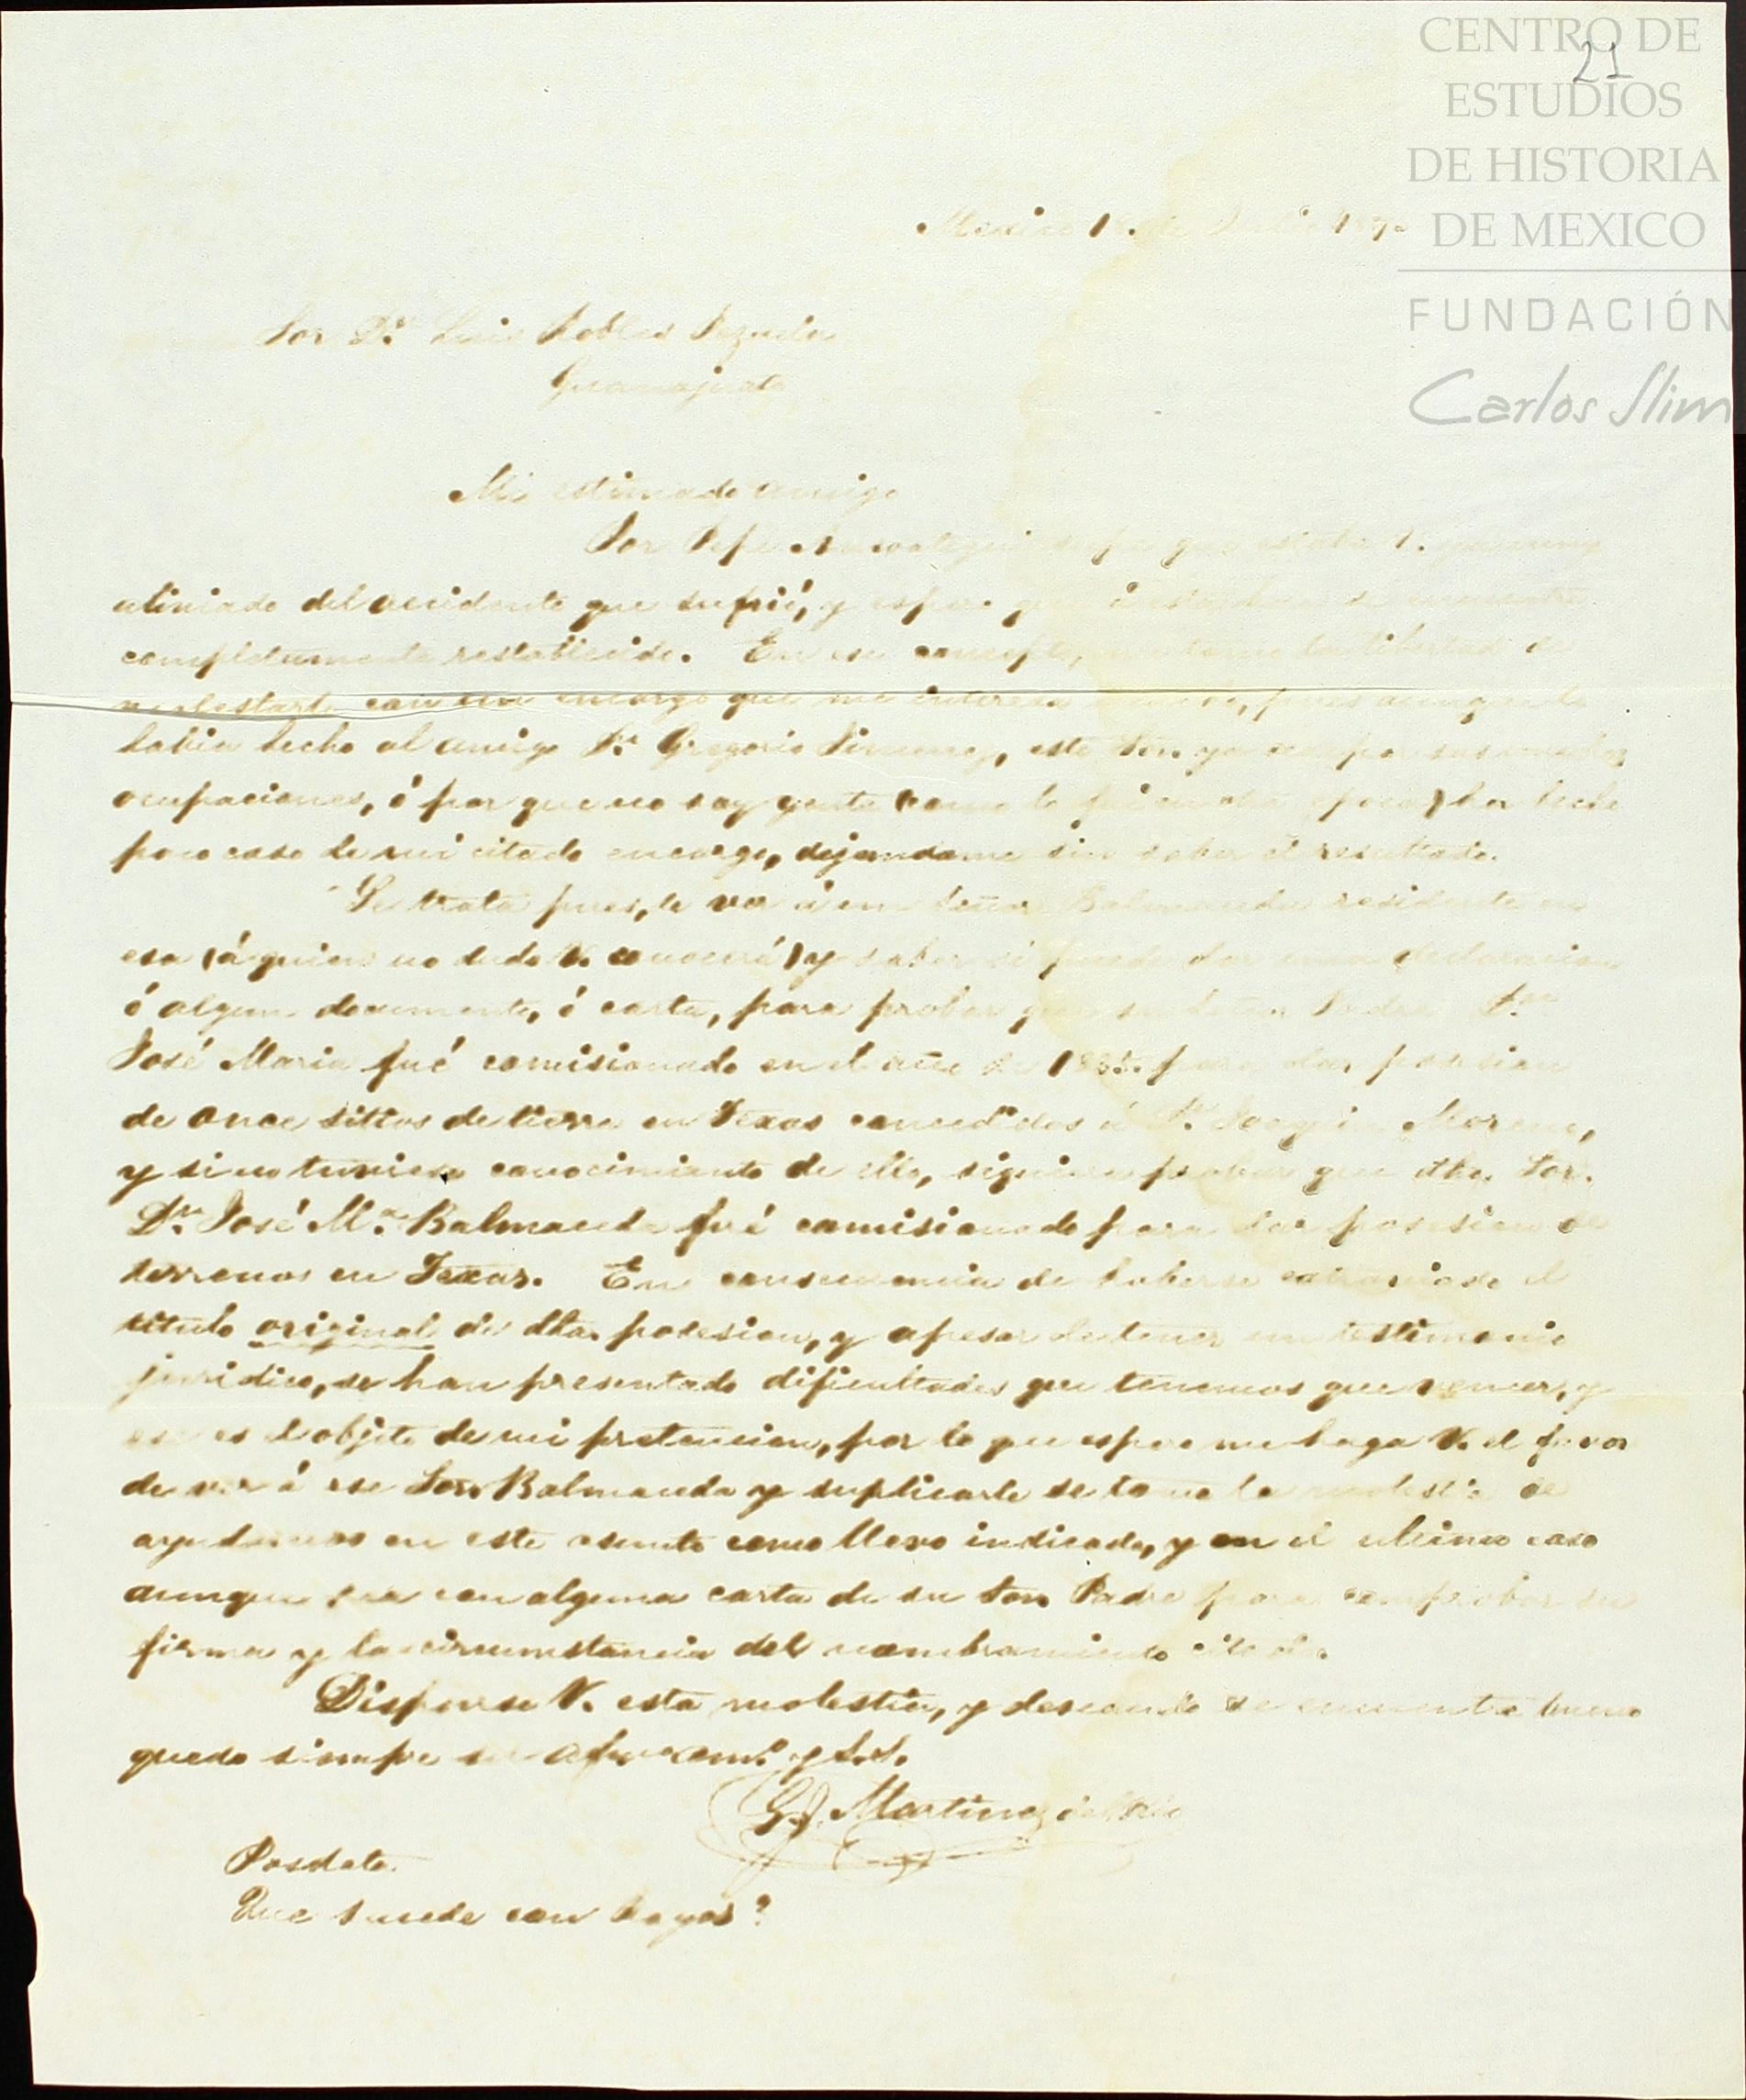 CENTRO DE
21
ESTUDIOS
DE HISTORIA
DE MEXICO
FUNDACIÓN
Carlos Slim
Mexico 1 de
Sor Dn Luis Robles Pezuela
Guanajuato
Mi estimado amigo
Por Pepe supe que estaba V.
aliviado del accidente que sufrió, y espero que á esta
completamente restablecido. En ese concepto, me tomo la libertad de
molestarle con un encargo que me interesa pues aunque lo
habia hecho al amigo Dn Gregorio Jimenez, este Sor. ya sea por sus muchas
ocupaciones, ó por que no soy gente (como lo fui en otra epoca) ha hecho
poco caso de mi citado encargo, dejandome sin saber el resultado.
Se trata pues, de ver á un Señor Balmaceda residente en
esa (á quien no dudo V. conocerá) y saber si puede dar una declaracion
ó algun documento, ó carta, para probar que su Señor Padre Dn
José Maria fué comisionado en el año de para dar posesion
de once sitios de tierra en Texas concedidos á Dn Joaquin Moreno,
y si no tuviera conocimiento de ello, siquiera probar que dho. Sor.
Dn José Ma. Balmaceda fué comisionado para dar posesion de
terrenos en Texas. En consecuencia de haberse extraviado el
titulo original de dha. posesion, y apesar de tener un testimonio
juridico, se han presentado dificultades que tenemos que vencer, y
ese es el objeto de mi pretencion, por lo que espero me haga V. el favor
de ver á ese Sor. Balmaceda y suplicarle se tome la molestia de
ayudarnos en este asunto como llevo indicado, y en el ultimo caso
aunque sea con alguna carta de su Sor. Padre para comprobar su
firma y la circumstancia del nombramiento citado.
Dispense V. esta molestia, y deseando se encuentre bueno
quedo siempre su afmo. am.o y S.S.
G. J. Martinez del Rio
Posdata.
Que sucede con Hayas?